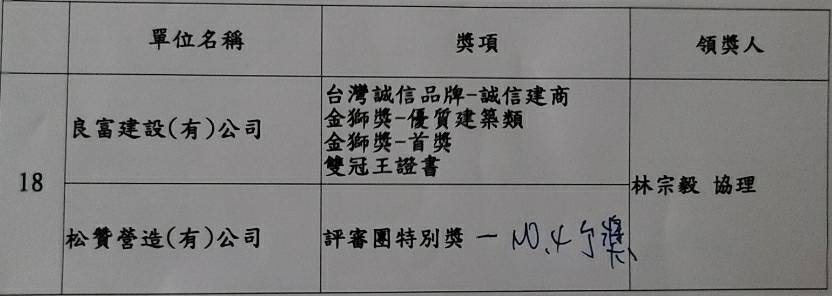 單位名稱 獎項 領獎人
18
良富建設(有)公司
台灣誠信品牌-誠信建商
金獅獎-優質建築類
金獅獎-首獎
雙冠王證書
林宗毅 協理
松贊營造(有)公司
評審團特別獎 — NO.4 獎